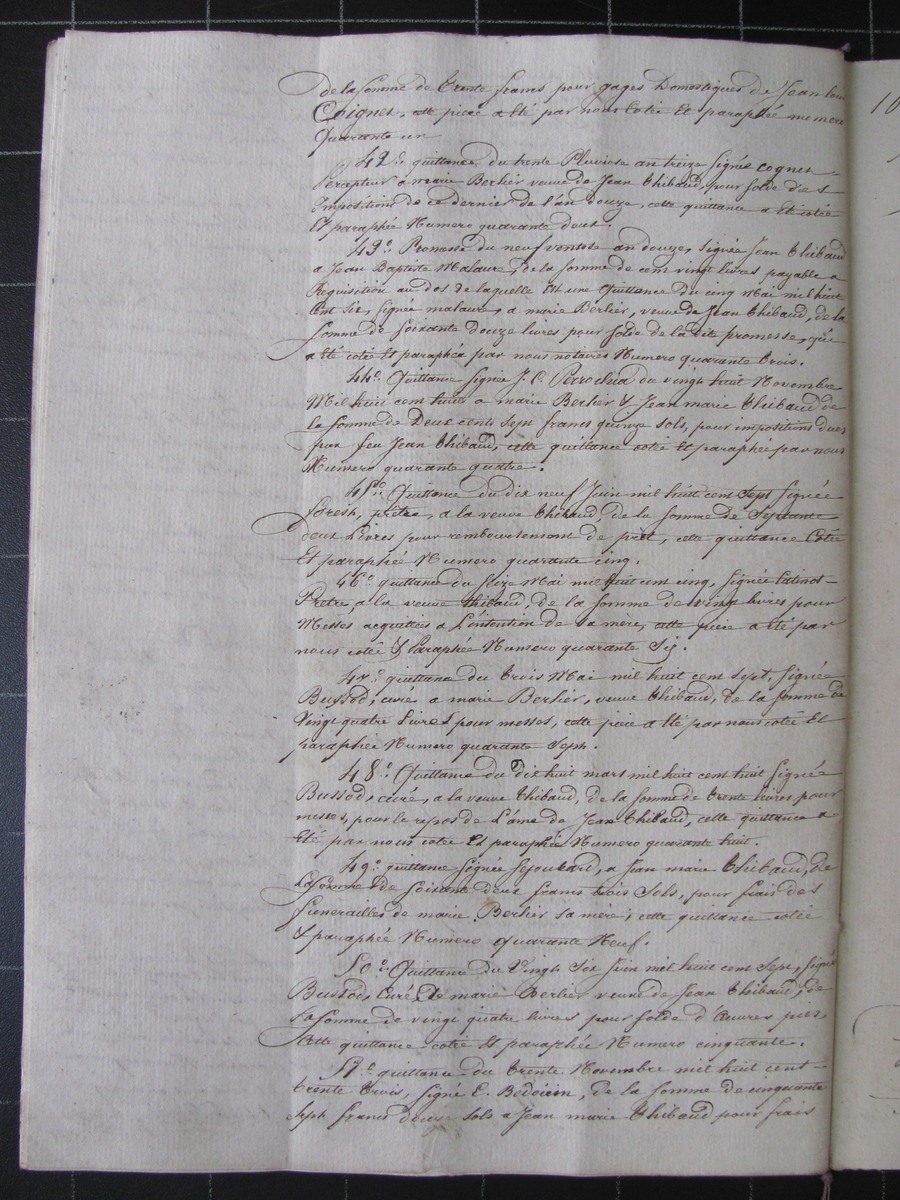 de la somme de trente francs pour gages Domestiques de Jean
Coignet, cette piece a été par nous cotée Et paraphée numero
Quarante un
42.° quittance du trente Pluviose an treize signée cognet
Percepteur a marie Berlier veuve de Jean thibaud, pour solde des
Impositions de ce dernier de l'an douze, cette quittance a été cotée
Et paraphée Numero quarante deux.
43.° Promesse du neuf ventose an douze, signée Jean thibaud
a Jean Baptiste Malaure, de la somme de cent vingt livres payable a
Requisition au dos de laquelle Est une Quittance du cinq Mai mil huit
Cent six, signée malaure, a marie Berlier, veuve de Jean thibaud, de la
somme de soixante douze livres pour solde de la dite promesse, qui
a été cotée Et paraphée par nous notaires Numero quarante trois.
44.° Quittance signée J. C. Perrochia du vingt huit Novembre
Mil huit cent huit a marie Berlier & Jean marie thibaud de
la somme de Deux cents sept francs quinze sols, pour impositions dues
par feu Jean thibaud, cette quittance cotée Et paraphée par nous
Numero quarante quatre.
45.° Quittance du dix neuf Juin mil huit cent sept signée
prêtre, a la veuve thibaud, de la somme de septante
deux Livres pour remboursement de prêt, cette quittance Cotée
Et paraphée Numero quarante cinq.
46.° quittance du seize Mai mil huit cent cinq, signée
Prêtre, a la veuve thibaud, de la somme de vingt livres pour
Messes acquittées a L'intention de sa mere, cette piece a été par
nous cotée & Paraphée Numero quarante Six.
47.° quittance du trois Mai mil huit cent sept, signée
Bussod, curé, a marie Berlier, veuve thibaud, de la somme de
Vingt quatre Livres pour messes, cette piece a été par nous cotée Et
paraphée Numero quarante Sept.
48.° Quittance du Dix huit mars mil huit cent huit signée
Bussod, curé, a la veuve thibaud, de la somme de trente livres pour
messes, pour le repos de L'âme de Jean thibaud, cette quittance a
Eté par nous cotée Et paraphée Numero quarante huit.
49.° quittance signée a Jean marie thibaud, de
La somme de soixante deux francs trois Sols, pour frais des
funerailles de marie Berlier sa mère, cette quittance cotée
& paraphée Numero quarante Neuf.
50.° Quittance du Vingt six Juin mil huit cent Sept, signée
Bussod, Curé, a marie Berlier veuve de Jean thibaud, de
La somme de vingt quatre livres pour solde d'Œuvres pies,
Cette quittance cotée Et paraphée Numero cinquante.
51.° quittance du trente Novembre mil huit cent
trente trois, signé E. Bedoiein, de la somme de cinquante
Sept francs douze sols a Jean marie thibaud pour frais
10